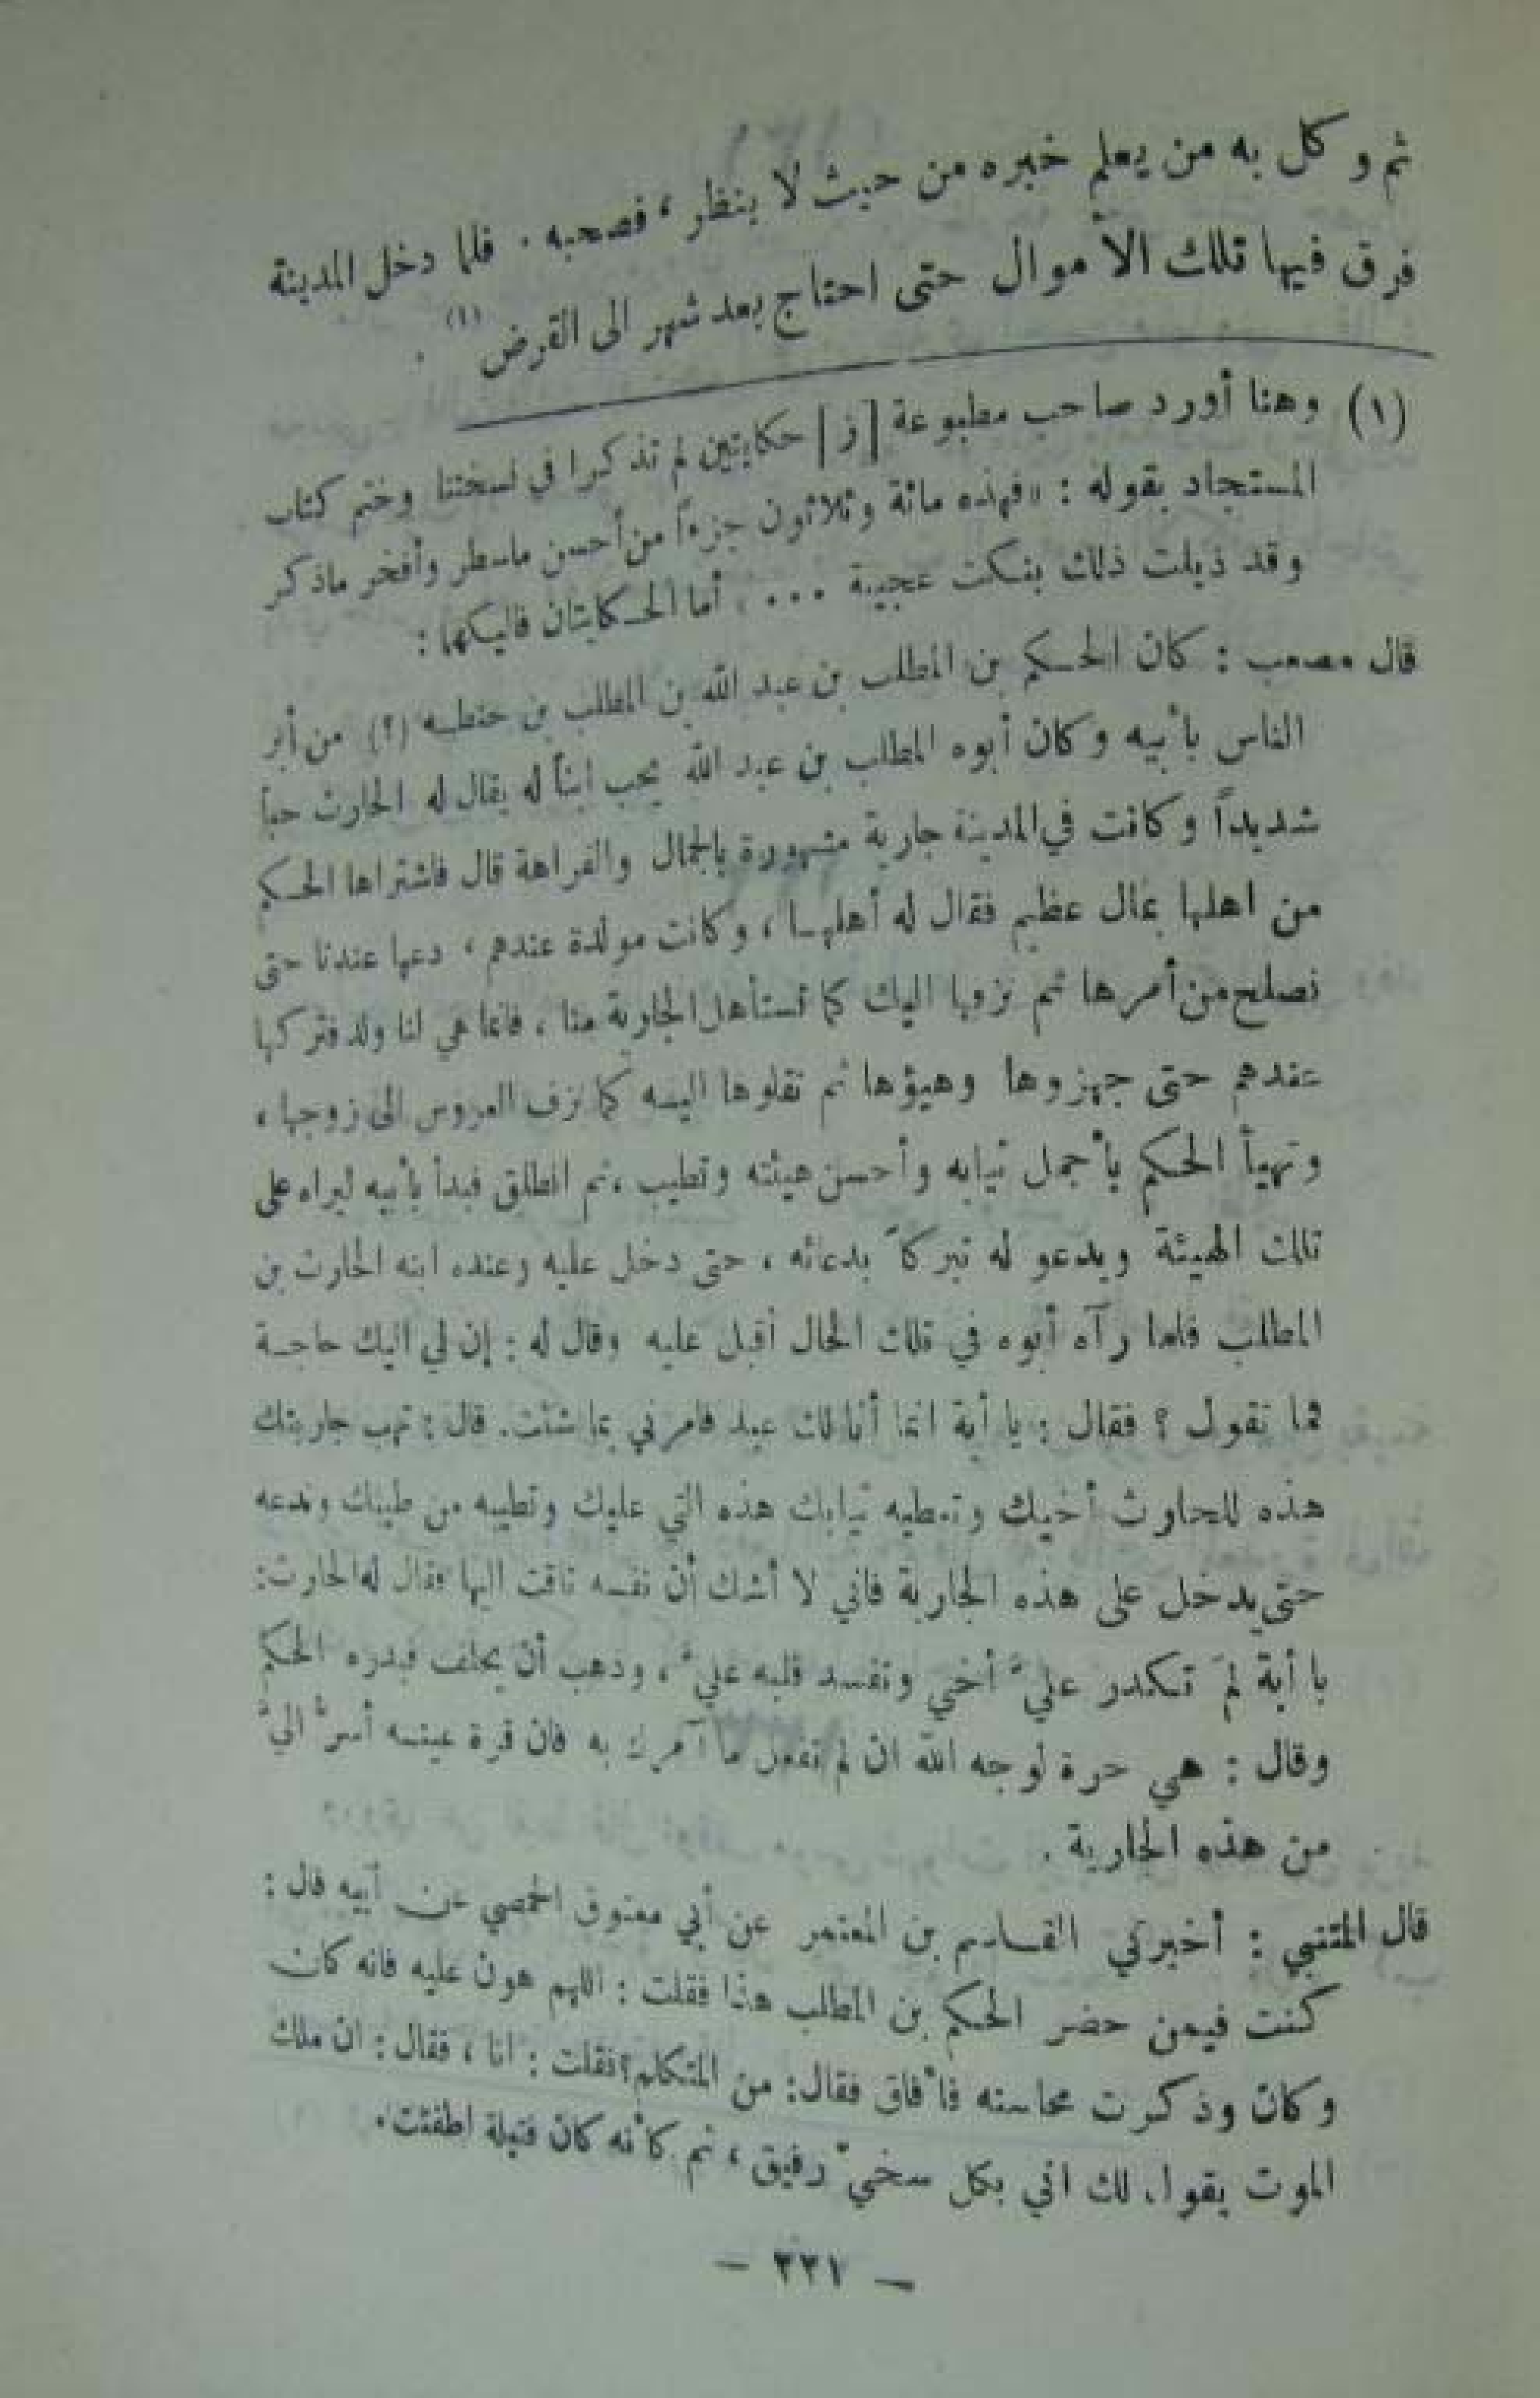 ثم وكل به من يعلم خبره من حيث لا ينظر ، فصحبه . فلما دخل المدينة
فرق فيها تلك الأموال حتى احتاج بعد شهر الى القرض (١) .
(١) وهنا أورد صاحب مطبوعة [ز] حكايتين لم تذكرا في نسختنا وختم كتاب
المستجاد بقوله : «فهذه مائة وثلاثون جزءاً من أحسن ماسطر وأفخر ماذكر
وقد ذيلت ذلك بنكت عجيبة ... أما الحكايتان فاليكهما :
قال مصعب : كان الحكم بن المطلب بن عبد الله بن المطلب بن حنطبه (؟) من أبر
الناس بأبيه وكان أبوه المطلب بن عبد الله يحب ابناً له يقال له الحارث حباً
شديداً وكانت في المدينة جارية مشهورة بالجمال والفراهة قال فاشتراها الحكم
من اهلها بمال عظيم فقال له أهلها ، وكانت مولدة عندهم ، دعها عندنا حتى
نصلح من أمرها ثم نزفها اليك كما تستأهل الجارية منا ، فانما هي لنا ولد فتركها
عندهم حتى جهزوها وهيؤها ثم نقلوها اليه كما تزف العروس الى زوجها ،
وتهيأ الحكم بأجمل ثيابه وأحسن هيئته وتطيب ، ثم انطلق فبدأ بأبيه ليراه على
تلك الهيئة ويدعو له تبركاً بدعائه ، حتى دخل عليه وعنده ابنه الحارث بن
المطلب فلما رآه أبوه في تلك الحال أقبل عليه وقال له : إن لي اليك حاجة
فما تقول ؟ فقال : يا أبة انما أنا لك عبد فامرني بما شئت. قال : تهب جاريتك
هذه للحارث أخيك وتعطيه ثيابك هذه التي عليك وتطيبه من طيبك وتدعه
حتى يدخل على هذه الجارية فاني لا أشك أن نفسه تاقت اليها فقال له الحارث:
يا أبة لمَ تكدر عليّ أخي وتفسد قلبه عليّ ، وذهب أن يحلف فبدره الحكم
وقال : هي حرة لوجه الله ان لم تفعل ما آمرك به فان قرة عينه أسرّ اليّ
من هذه الجارية .
قال المتنبي : أخبرني القاسم بن المعتمر عن أبي معتوق الحمصي عن أبيه قال :
كنت فيمن حضر الحكم بن المطلب هذا فقلت : اللهم هون عليه فانه كان
وكان وذكرت محاسنه فأفاق فقال: من المتكلم؟ فقلت : انا ، فقال : ان ملك
الموت يقول لك اني بكل سخيّ رفيق ، ثم كأنه كان فتيلة اطفئت.
— ٢٢١ —